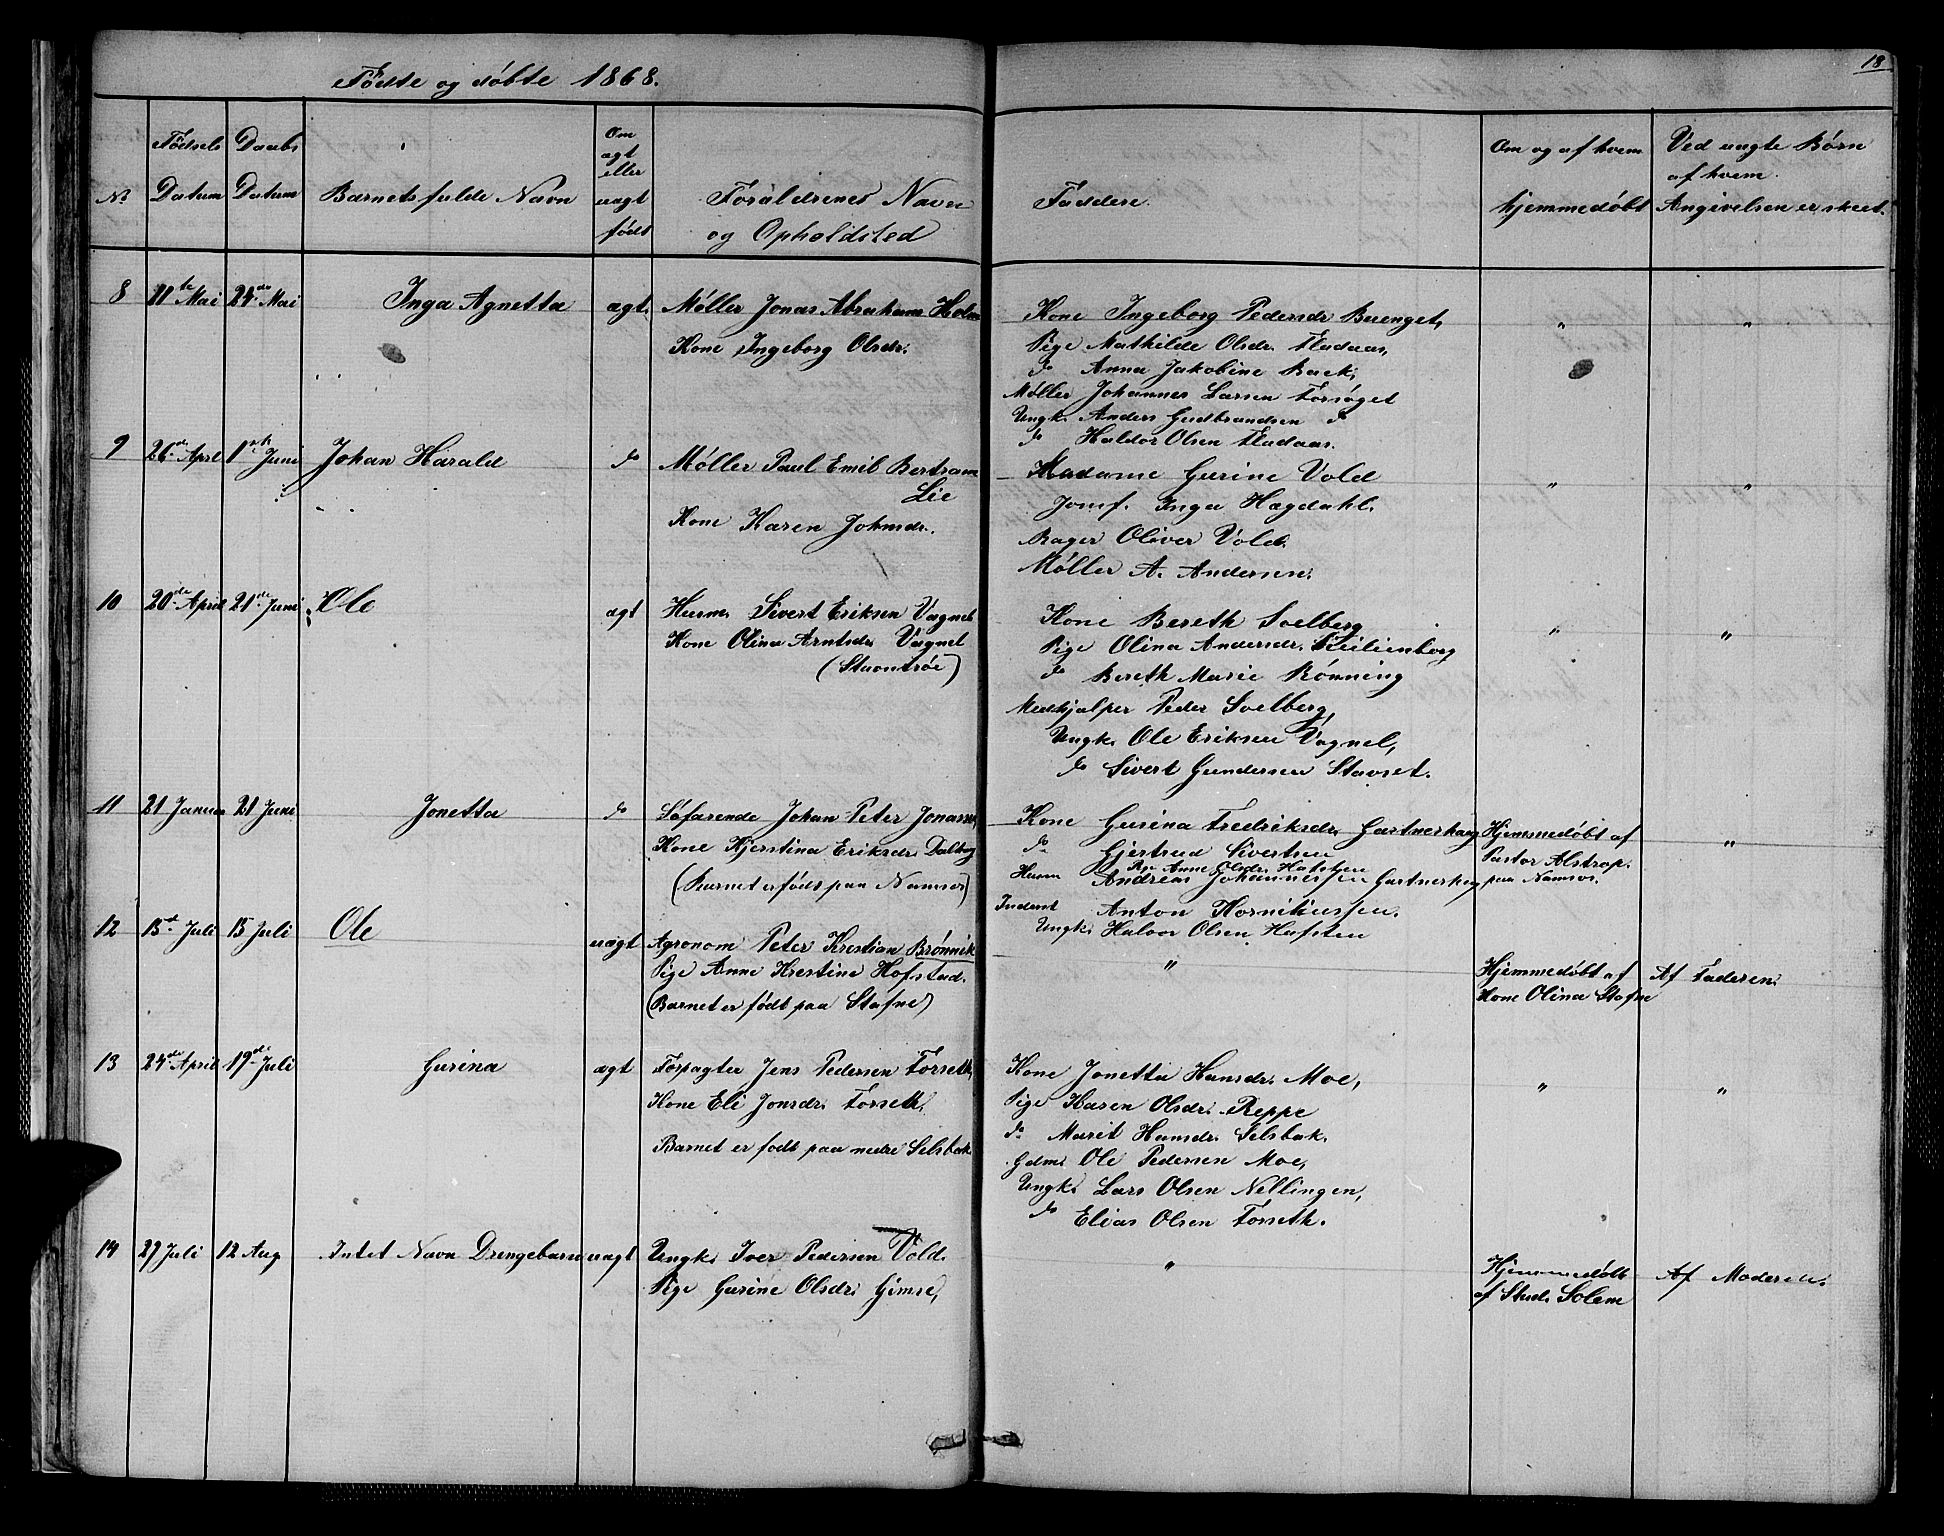 Fødte og døbte 1868.
18
No
Fødsels Datum
Daabs Datum
Barnets fulde Navn
Om ægt eller uægt født
Forældrenes Navn og Opholdsted
Faddere
Om og af hvem hjemmedøbt
Ved uægte Børn af hvem Angivelsen er skeet.
8 11te Mai 24de Mai Inga Agnetta ægt. Møller Jonas Abraham Holm
Kone Ingeborg Olsdr.
Kone Ingeborg Pedersdr Buenget,
Pige Mathilde Olsdr. Fladaas,
do Anna Jakobine Bæck,
Møller Johannes Larsen Forsøget
Ungk. Anders Gudbrandsen do
do Haldor Olsen Fladaas.
" "
9 26de April 1ste Juni Johan Harald do Møller Paul Emil Bertram
Lie
Kone Karen Johnsdr.
Madame Gurine Vold
Jomf. Inga Hægdahl.
Bager Oliver Vold.
Møller A. Andersen.
" "
10 20de April 21de Juni Ole ægt Husm. Sivert Eriksen Vagnel
Kone Olina Arntsdr. Vagnel
(Stavntrøe)
Kone Bereth Solberg
Pige Olina Andersdr. Ceilienborg
do Bereth Marie Rønning
Medhjælper Peder Solberg,
Ungk. Ole Eriksen Vagnel,
do Sivert Gundersen Stavset.
" "
11 21 Januar 21 Juni Jonetta do Søfarende Johan Peter Jonassen
Kone Kjerstina Eriksdr. Dalhaug
(Barnet er født paa Namsos)
Kone Gurina Fredriksdr. Gartnerhaug
do Gjertrud Sivertsen
Pige Anne Olsdr. Hafsten
Husm Andreas Johannessen Gartnerhaug
Inderst Anton Kornikussen.
Ungk. Halvor Olsen Hafsten
Hjemmedøbt af
Pastor Alstrop.
paa Namsos.
"
12 15de Juli 15 Juli Ole uægt Agronom Peter Krestian Brønnik
Pige Anne Krestine Hofstad.
(Barnet er født paa Stafne)
"
Hjemmedøbt af
Kone Olina Stafne
Af Faderen.
13 24de April 19de Juli Gurina ægt Forpagter Jens Pedersen Forseth,
Kone Eli Jonsdr. Forseth.
Barnet er født paa nedre Selsbak
Kone Jonetta Hansdr. Moe,
Pige Karen Olsdr. Reppe
do Marit Hansdr. Selsbak.
Gdm. Ole Pedersen Moe,
Ungk. Lars Olsen Nellingen,
do Elias Olsen Forseth.
" "
14 27 Juli 12 Aug Intet Navn Drengebarn uægt Ungk. Iver Pedersen Vold.
Pige Gurine Olsdr. Gimse,
"
Hjemmedøbt
af Stud. Solem
Af Moderen.